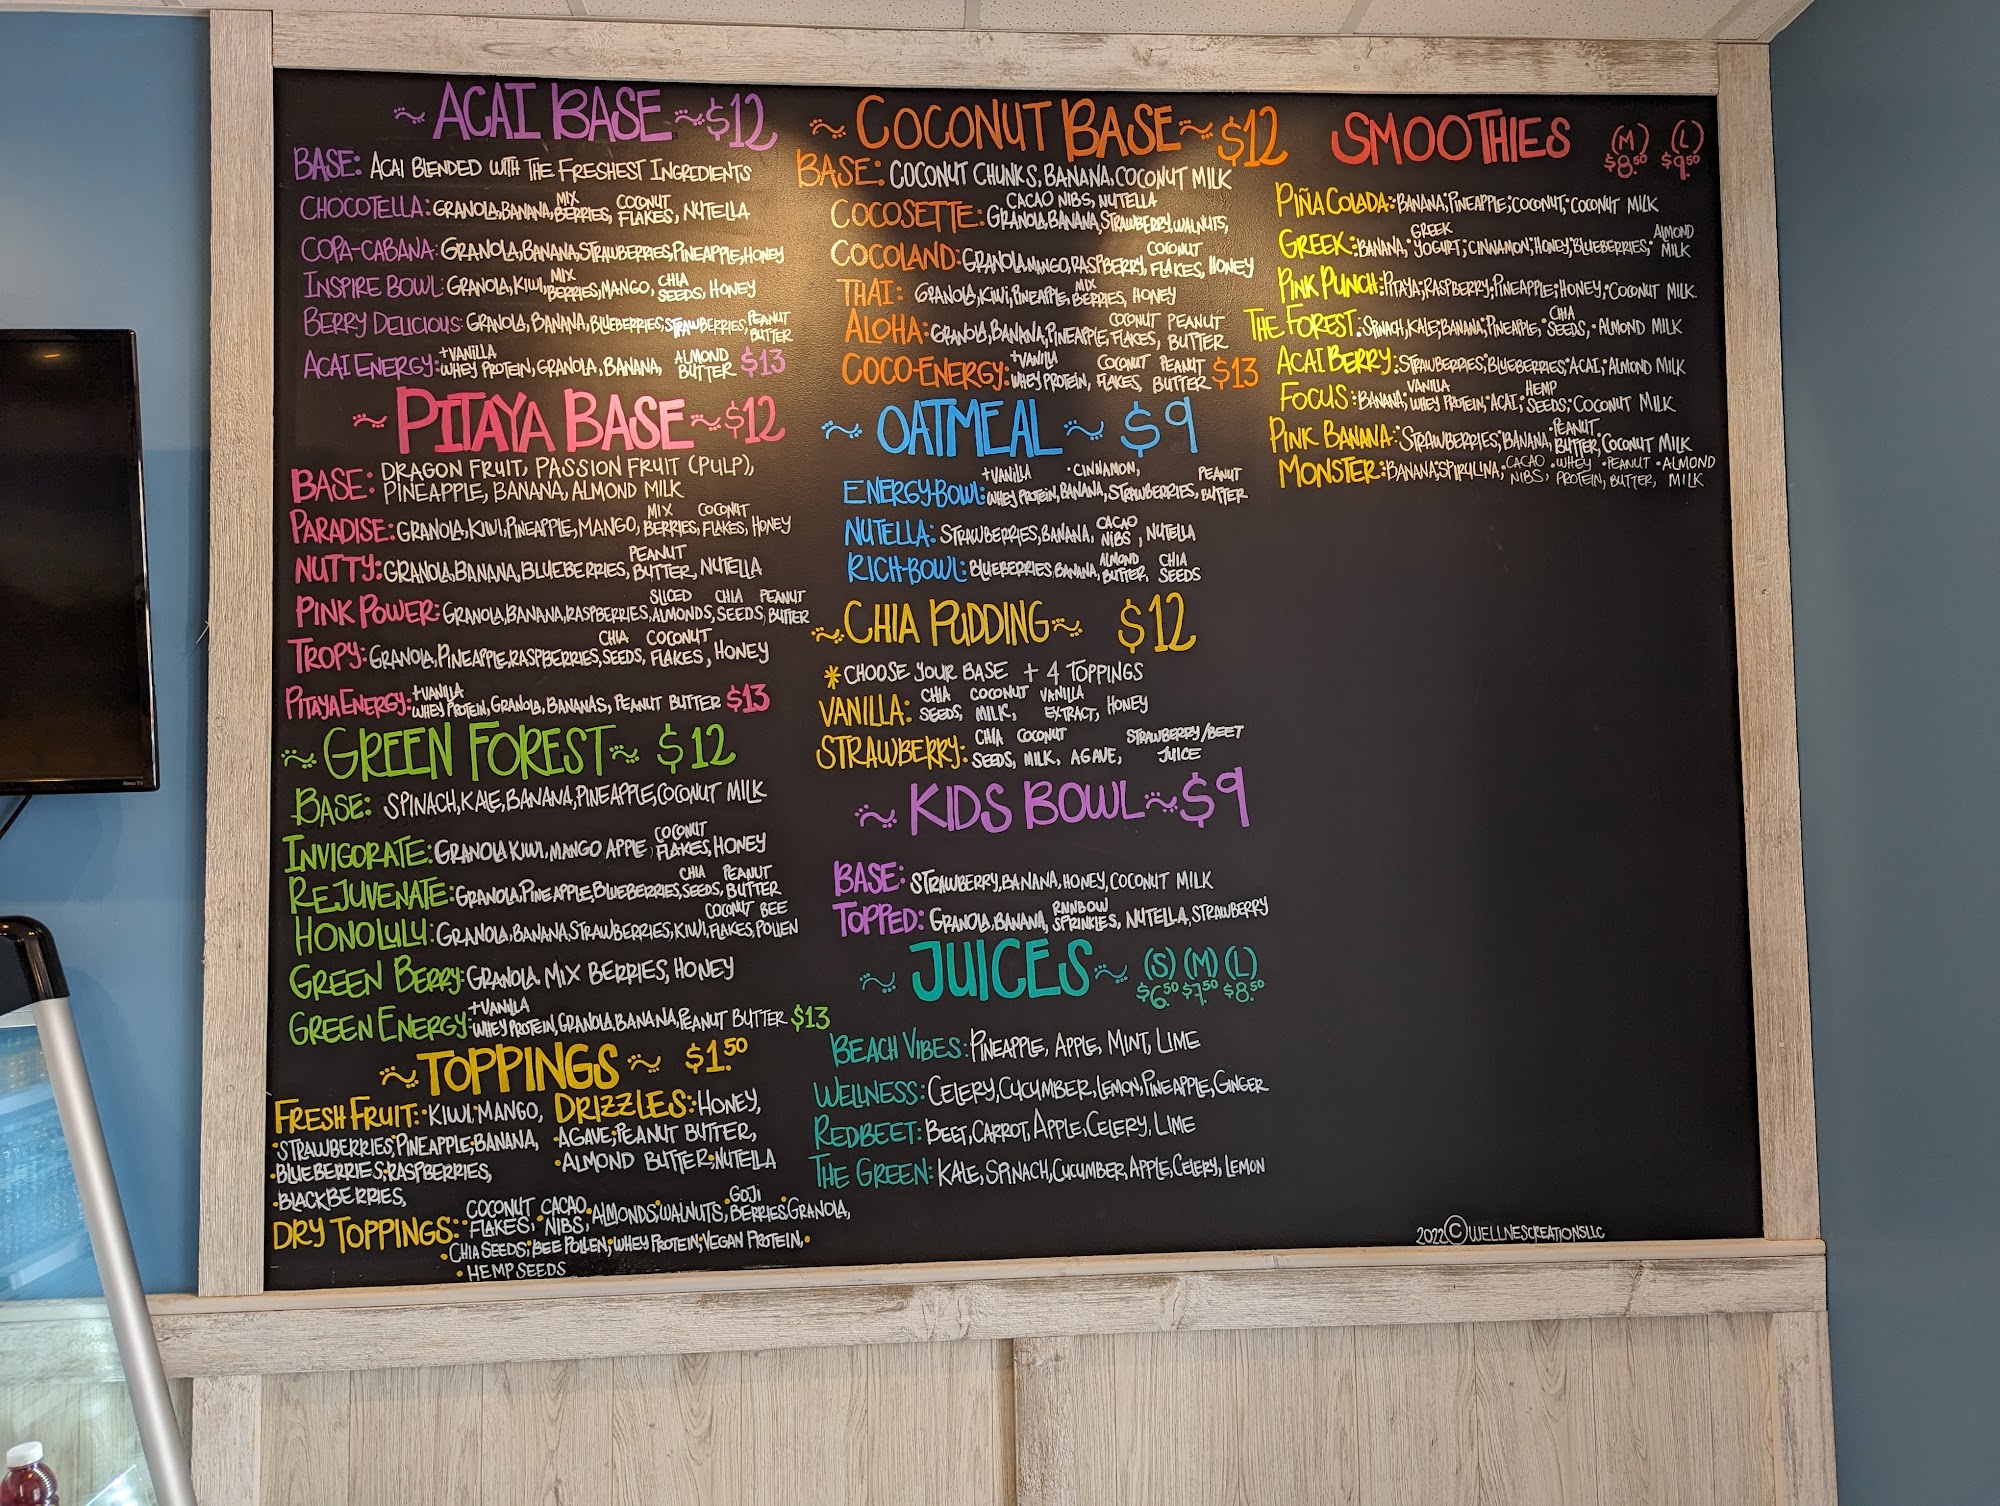 ~ ACAI BASE ~ $12
BASE: ACAI BLENDED WITH THE FRESHEST INGREDIENTS
CHOCOTELLA: GRANOLA, BANANA, MIX BERRIES, COCONUT FLAKES, NUTELLA
COPA-CABANA: GRANOLA, BANANA, STRAWBERRIES, PINEAPPLE, HONEY
INSPIRE BOWL: GRANOLA, KIWI, MIX BERRIES, MANGO, CHIA SEEDS, HONEY
BERRY DELICIOUS: GRANOLA, BANANA, BLUEBERRIES, STRAWBERRIES, PEANUT BUTTER
ACAI ENERGY: +VANILLA WHEY PROTEIN, GRANOLA, BANANA, ALMOND BUTTER $13
~ PITAYA BASE ~ $12
BASE: DRAGON FRUIT, PASSION FRUIT (PULP),
PINEAPPLE, BANANA, ALMOND MILK
PARADISE: GRANOLA, KIWI, PINEAPPLE, MANGO, MIX BERRIES, COCONUT FLAKES, HONEY
NUTTY: GRANOLA, BANANA, BLUEBERRIES, PEANUT BUTTER, NUTELLA
PINK POWER: GRANOLA, BANANA, RASPBERRIES, SLICED ALMONDS, CHIA SEEDS, PEANUT BUTTER
TROPY: GRANOLA, PINEAPPLE, RASPBERRIES, CHIA SEEDS, COCONUT FLAKES, HONEY
PITAYA ENERGY: +VANILLA WHEY PROTEIN, GRANOLA, BANANAS, PEANUT BUTTER $13
~ GREEN FOREST ~ $12
BASE: SPINACH, KALE, BANANA, PINEAPPLE, COCONUT MILK
INVIGORATE: GRANOLA KIWI, MANGO APPLE, COCONUT FLAKES, HONEY
REJUVENATE: GRANOLA, PINEAPPLE, BLUEBERRIES, CHIA SEEDS, PEANUT BUTTER
HONOLULU: GRANOLA, BANANA, STRAWBERRIES, KIWI, COCONUT FLAKES, BEE POLLEN
GREEN BERRY: GRANOLA, MIX BERRIES, HONEY
GREEN ENERGY: +VANILLA WHEY PROTEIN, GRANOLA, BANANA, PEANUT BUTTER $13
~ TOPPINGS ~ $1.50
FRESH FRUIT: • KIWI • MANGO,
• STRAWBERRIES, PINEAPPLE, BANANA,
• BLUEBERRIES, • RASPBERRIES,
• BLACKBERRIES,
DRIZZLES: • HONEY,
• AGAVE, • PEANUT BUTTER,
• ALMOND BUTTER • NUTELLA
DRY TOPPINGS: • COCONUT FLAKES, • CACAO NIBS, • ALMONDS, • WALNUTS, • GOJI BERRIES, • GRANOLA,
• CHIA SEEDS, • BEE POLLEN, • WHEY PROTEIN, • VEGAN PROTEIN, •
• HEMP SEEDS
~ COCONUT BASE ~ $12
BASE: COCONUT CHUNKS, BANANA, COCONUT MILK
COCOSETTE: GRANOLA, BANANA, STRAWBERRY, WALNUTS, CACAO NIBS, NUTELLA
COCOLAND: GRANOLA, MANGO, RASPBERRY, COCONUT FLAKES, HONEY
THAI: GRANOLA, KIWI, PINEAPPLE, MIX BERRIES, HONEY
ALOHA: GRANOLA, BANANA, PINEAPPLE, COCONUT FLAKES, PEANUT BUTTER
COCO-ENERGY: +VANILLA WHEY PROTEIN, COCONUT FLAKES, PEANUT BUTTER $13
~ OATMEAL ~ $9
ENERGY-BOWL: +VANILLA WHEY PROTEIN, • CINNAMON, BANANA, STRAWBERRIES, PEANUT BUTTER
NUTELLA: STRAWBERRIES, BANANA, CACAO NIBS, NUTELLA
RICH-BOWL: BLUEBERRIES BANANA, ALMOND BUTTER, CHIA SEEDS
~ CHIA PUDDING ~ $12
* CHOOSE YOUR BASE + 4 TOPPINGS
VANILLA: CHIA SEEDS, COCONUT MILK, VANILLA EXTRACT, HONEY
STRAWBERRY: CHIA SEEDS, COCONUT MILK, AGAVE, STRAWBERRY/BEET JUICE
~ KIDS BOWL ~ $9
BASE: STRAWBERRY, BANANA, HONEY, COCONUT MILK
TOPPED: GRANOLA, BANANA, RAINBOW SPRINKLES, NUTELLA, STRAWBERRY
~ JUICES ~ (S) $6.50 (M) $7.50 (L) $8.50
BEACH VIBES: PINEAPPLE, APPLE, MINT, LIME
WELLNESS: CELERY, CUCUMBER, LEMON, PINEAPPLE, GINGER
REDBEET: BEET, CARROT, APPLE, CELERY, LIME
THE GREEN: KALE, SPINACH, CUCUMBER, APPLE, CELERY, LEMON
SMOOTHIES (M) $8.50 (L) $9.50
PIÑA COLADA: BANANA, • PINEAPPLE, • COCONUT, • COCONUT MILK
GREEK: BANANA, • GREEK YOGURT, • CINNAMON, • HONEY, • BLUEBERRIES, • ALMOND MILK
PINK PUNCH: PITAYA, • RASPBERRY, • PINEAPPLE, • HONEY, • COCONUT MILK.
THE FOREST: SPINACH, KALE, • BANANA, • PINEAPPLE, • CHIA SEEDS, • ALMOND MILK
ACAI BERRY: STRAWBERRIES, • BLUEBERRIES, • ACAI, • ALMOND MILK
FOCUS: BANANA, • VANILLA WHEY PROTEIN, • ACAI, • HEMP SEEDS, • COCONUT MILK
PINK BANANA: • STRAWBERRIES, • BANANA, • PEANUT BUTTER, • COCONUT MILK
MONSTER: BANANA, • SPIRULINA, • CACAO NIBS, • WHEY PROTEIN, • PEANUT BUTTER, • ALMOND MILK
2022 © WELLNESCREATIONSLLC
Roku TV